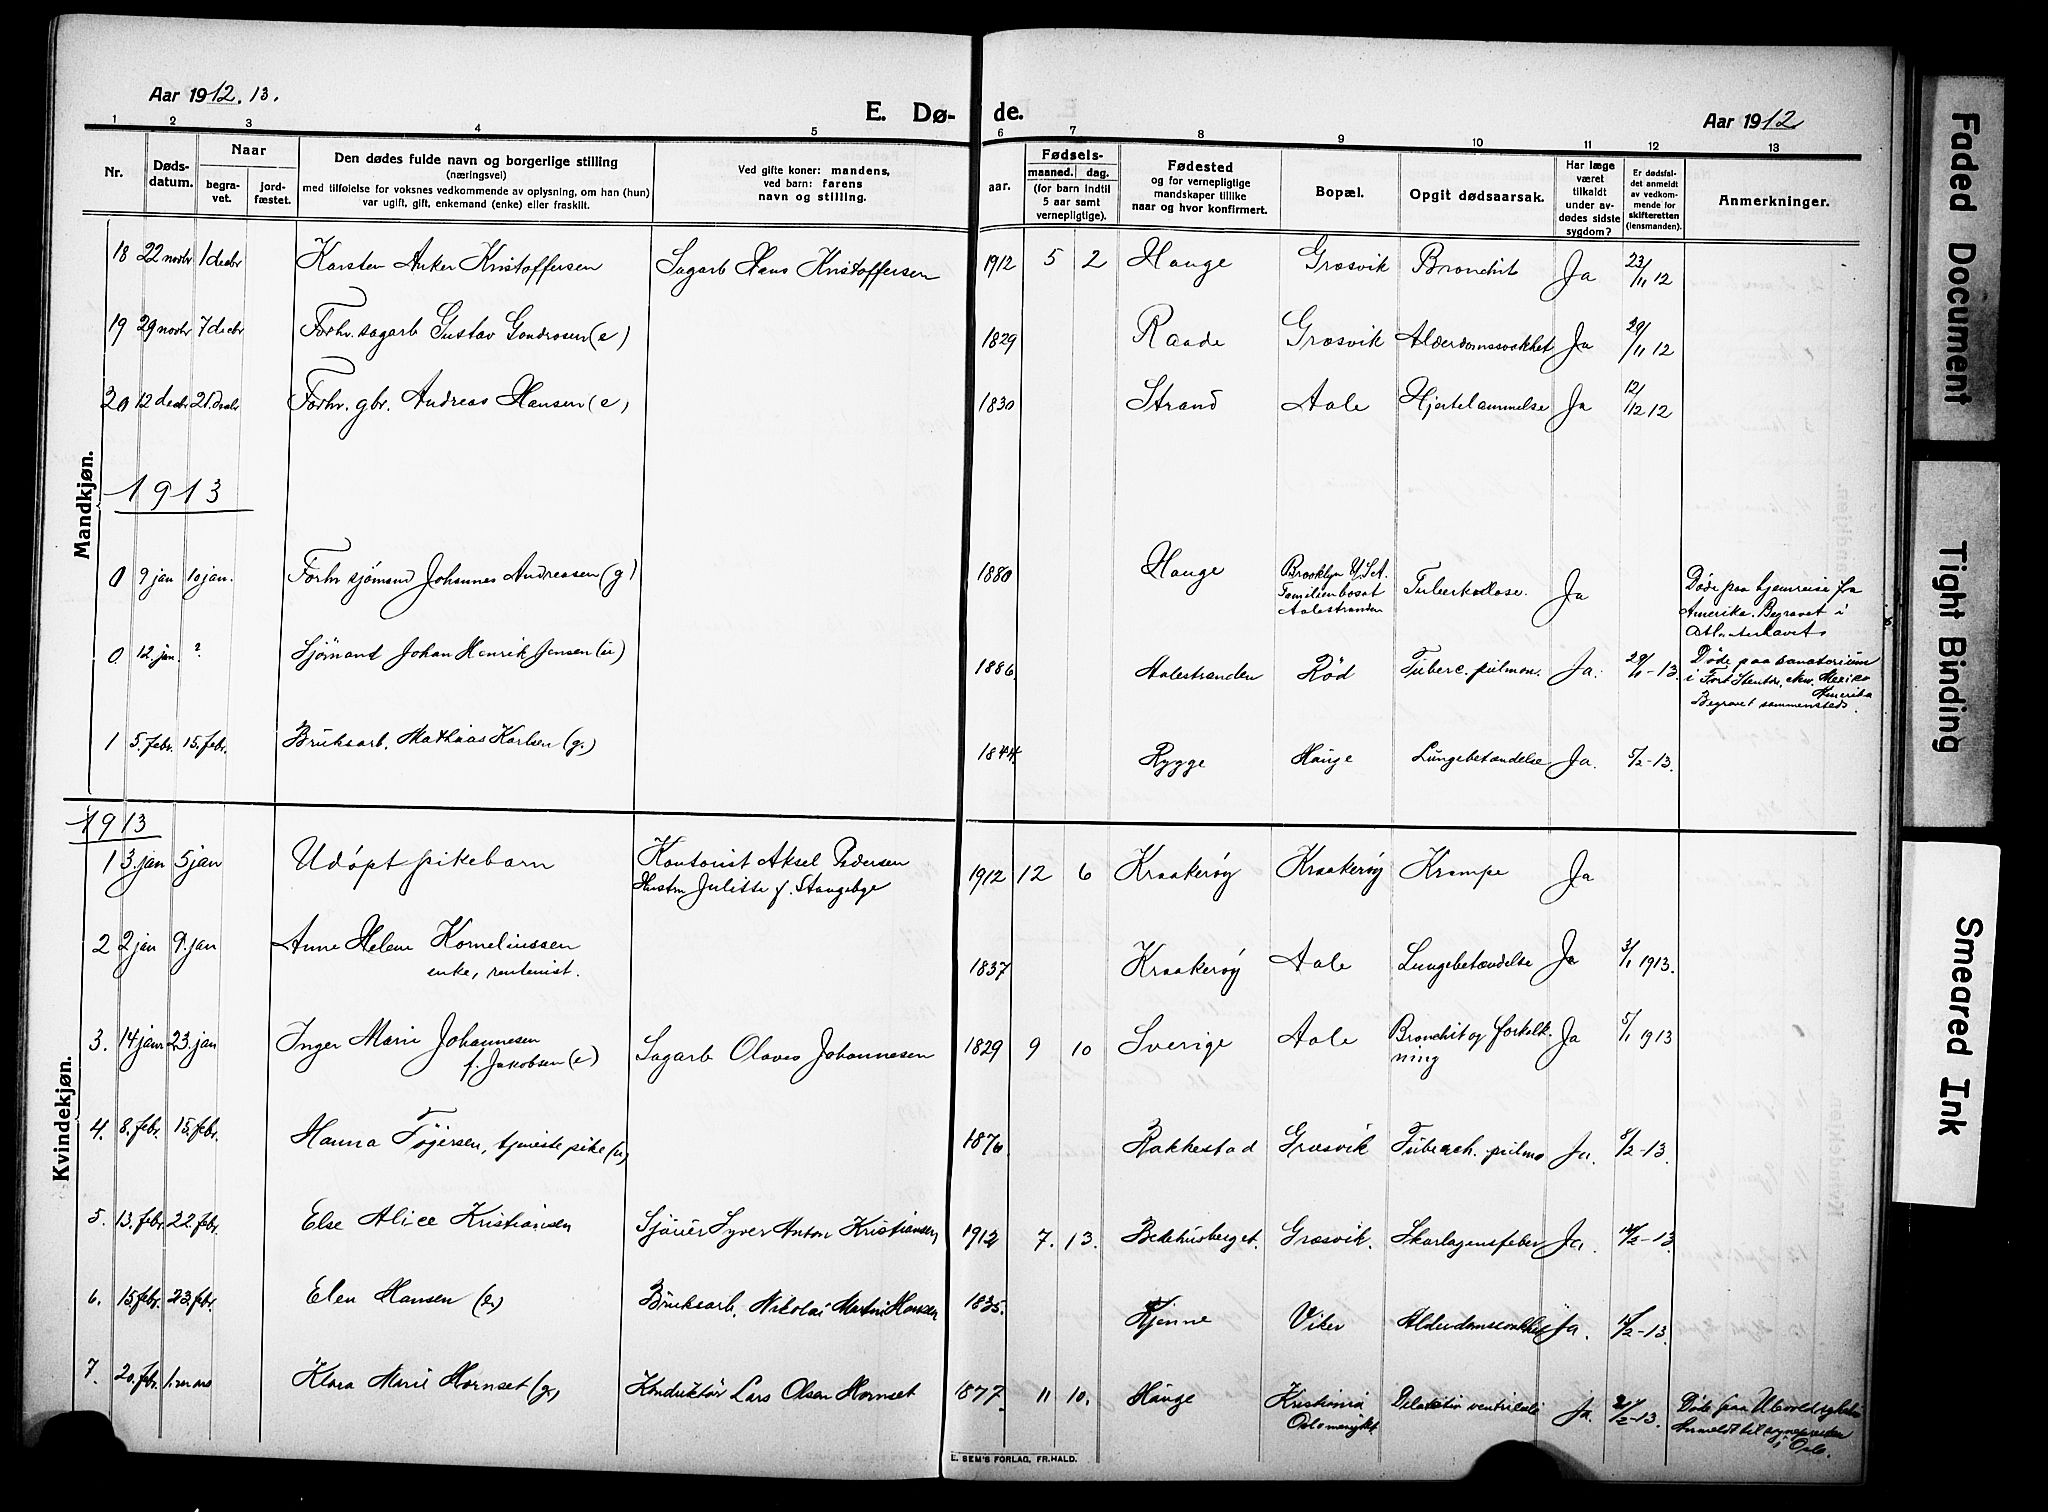 Aar 1912. 13.
E. Dø- de.
Aar 1912
1 2 3 4 5 6 7 8 9 10 11 12 13
Nr. Døds-datum. Naar begra-vet. jord-fæstet. Den dødes fulde navn og borgerlige stilling (næringsvei) med tilføielse for voksnes vedkommende av oplysning, om han (hun) var ugift, gift, enkemand (enke) eller fraskilt. Ved gifte koner: mandens, ved barn: farens navn og stilling. aar. Fødsels- maaned. dag. (for barn indtil 5 aar samt vernepligtige). Fødested og for vernepligtige mandskaper tillike naar og hvor konfirmert. Bopæl. Opgit dødsaarsak. Har læge været tilkaldt under av-dødes sidste sygdom? Er dødsfal-det anmeldt av vedkom-mende for skifteretten (lensmanden). Anmerkninger.
Mandkjøn.
18 22 novbr 1 decbr Karsten Anker Kristoffersen Sagarb Hans Kristoffersen 1912 5 2 Hauge Græsvik Bronchit Ja 23/11 12
19 29 novbr 7 decbr Forhv. sagarb Gustav Gundrosen (e) 1829 Raade Græsvik Alderdomssvakhet Ja 29/11 12
20 12 decbr 21. decbr Forhv. gbr. Andreas Hansen (e) 1830 Strand Aale Hjertelammelse Ja 12/12 12
1913
0 9 jan 10 jan. Forhv sjømand Johannes Andreasen (g) 1880 Hauge Brooklyn U.S.A. Familien bosat Aalestranden Tuberkulose. Ja Døde paa hjemreise fra Amerika. Begravet i Atlanterhavet
0. 12. jan. ? Sjømand Johan Henrik Jensen (u) 1886. Aalestranden Rød Tuberc. pulmon. Ja. 29/1-13. Døde paa sanatorium i Fort Stenton, New Mexico Amerika Begravet sammensteds.
1 5. febr. 15. febr. Bruksarb. Mathias Karlsen (g.) 1844. Rygge Hauge Lungebetændelse Ja. 5/2-13.
1913
Kvindekjøn.
1 3. jan 5 jan Udøpt pikebarn Kontorist Aksel Pedersen Hustru Julitte f. Stangebye 1912 12 6 Kraakerøy Kraakerøy Krampe Ja
2 2 jan 9. jan Anne Helene Korneliussen enke, rentenist. 1837 Kraakerøy Aale Lungebetændelse Ja 3/1 1913.
3. 14 janr 23. jan Inger Marie Johannesen f. Jakobsen (e) Sagarb Olaves Johannesen 1829 9 10 Sverige Aale Bronchit og forkølk-ning Ja 5/1 1913
4. 8. febr. 15. febr. Hanna Tøgersen, tjeneste pike (u) 1876 Rakkestad Græsvik Tubercch. pulmo Ja. 8/2-13.
5. 13. febr. 22. febr. Else Alice Kristiansen Sjauer Syver Anton Kristiansen 1912 7. 13. Bedehusberget. Græsvik. Skarlagensfeber Ja. 14/2-13.
6. 15. febr. 23. febr. Elen Hansen (e.) Bruksarb. Nikolai Martin Hansen 1835. Kjenne Viker Alderdomssvakhet Ja. 15/2-13.
7. 20. febr. 1. mars Klara Marie Hornset (g.) Konduktør Lars Olsen Hornset 1877. 11 10. Hauge Kristiania Oslo menighet Dilatatio ventriculi Ja. 21/2-13. Døde paa Ullevold sykehus Anmeldt til sognepresten i Oslo.
E. SEM'S FORLAG, FR.HALD.
Faded Document
Tight Binding
Smeared Ink